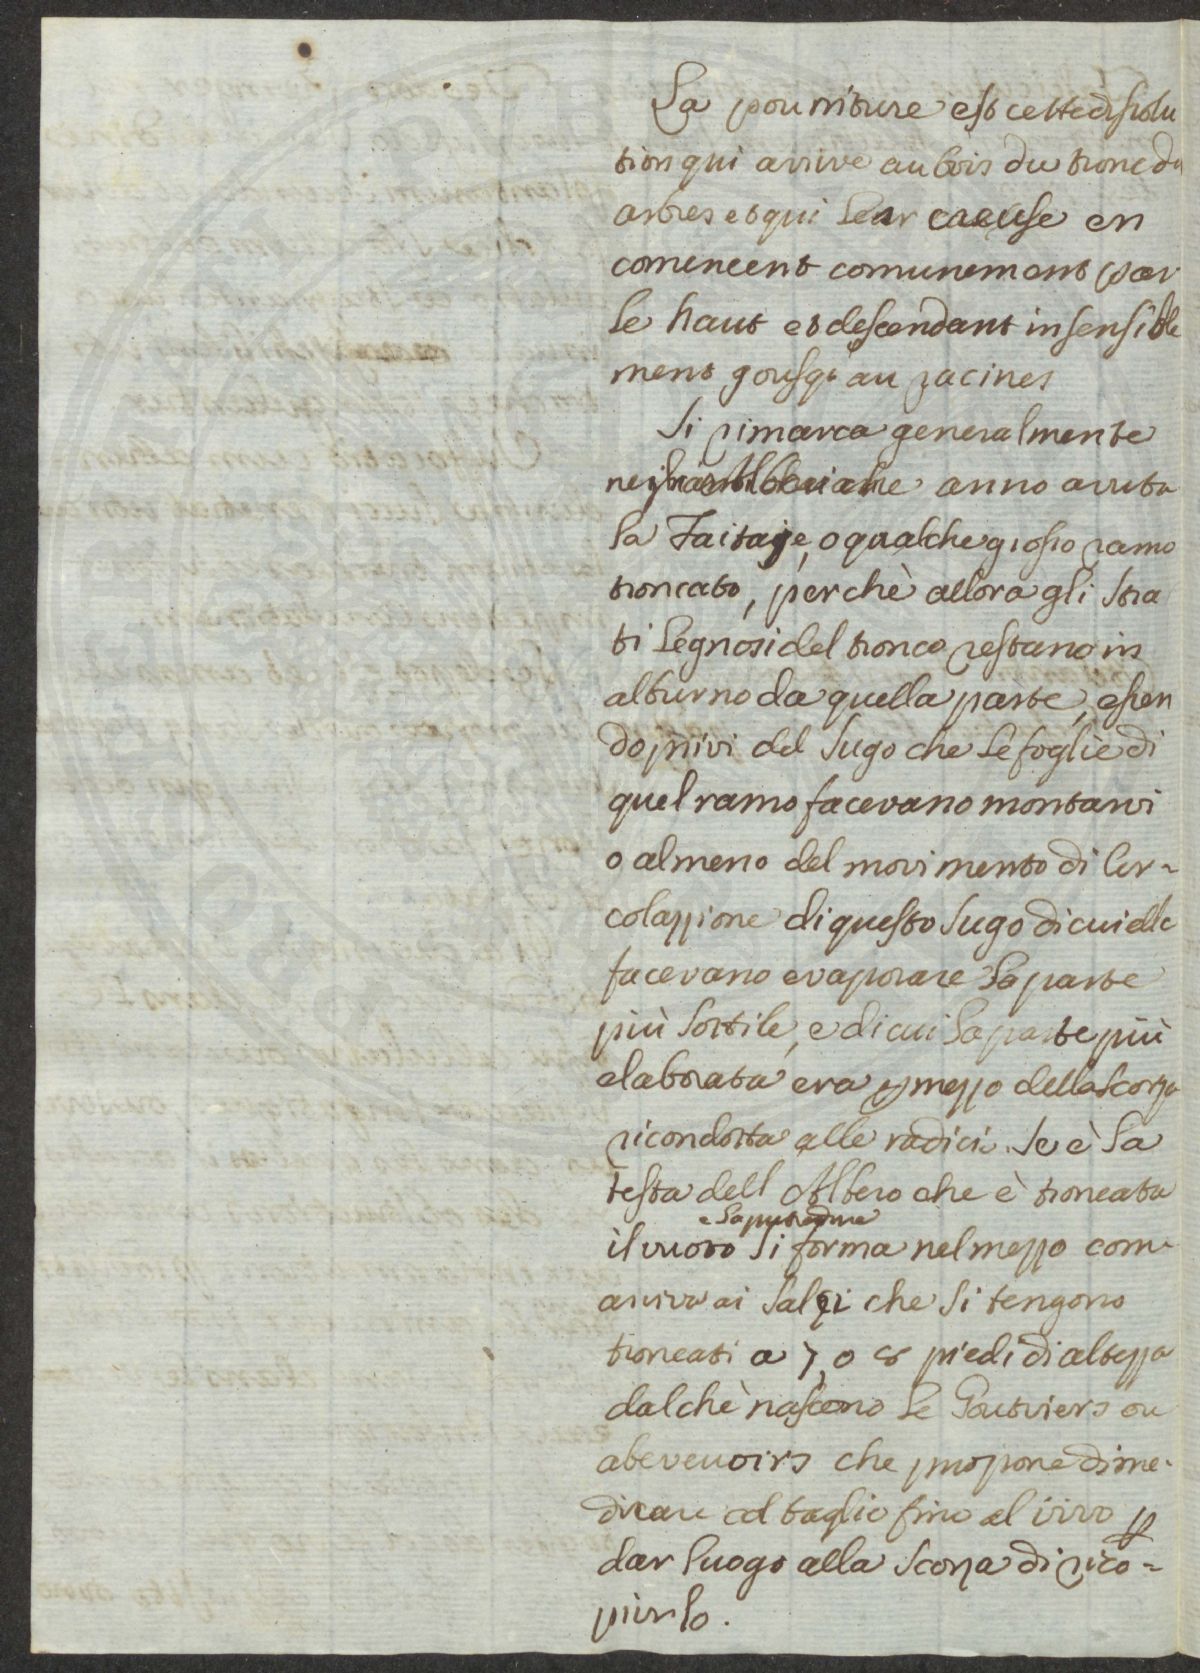 La pourriture est cette dissolu
tion qui arrive au bois du tronc des
arbres et qui leur caeuse en
comencent comunement par
le haut et descendant insensible
ment jousqu'au racines
Si rimarca generalmente
negli Alberi che anno avuta
la Faitage, o qualche grosso ramo
troncato, perchè allora gli stra
ti legnosi del tronco restano in
alburno da quella parte, essen
do privi del sugo che le foglie di
quel ramo facevano montarvi
o almeno del movimento di Cir-
colazzione di questo sugo di cui elle
facevano evaporare la parte
più sottile, e di cui la parte più
elaborata era p mezzo della scorza
ricondotta alle radici. Se è la
testa dell Albero che è troncata
e la putredine
il vuoto si forma nel mezzo come
arriva ai Salci che si tengono
troncati a 7, o 8 piedi di altezza
dal chè nascono le Goutviers ou
abevenoirs che propone di me-
dicare col taglio fino al vivo p
dar luogo alla scorza di rico-
pirlo.